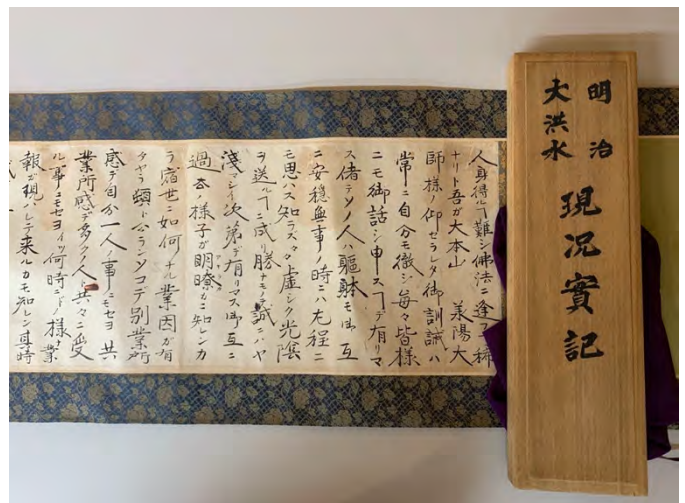 明治
大洪水
現況實記
人身得ルヿ難シ佛法ニ逢フヿ稀
ナリト吾ガ大本山 承陽大
師様ノ御セラレタ御訓誡ハ
常ニ自分モ徹シ毎々皆様
ニモ御話シ申スヿデ有リマ
ス偖テソノ人ハ軀躰モ御互
ニ安穏無事ノ時ニハ左程ニ
モ思ハス知ラズ々虚シク光陰
ヲ送ルヿニ成リ勝ナモノデ誠ニハヤ
淺マシイ次第デ有リマス御互ニ
過去ノ様子ガ明瞭カニ知レンカ
ラ宿世ニ如何ナル業因ガ有
タヤラ頓ト分ランソコデ別業所
感デ自分一人ノ事ニモセヨ 共
業所感デ多クノ人ト共々ニ受
ル事ニモセヨイツ何時ドノ様ナ業
報ガ現ハレテ来ルカモ知レン其時